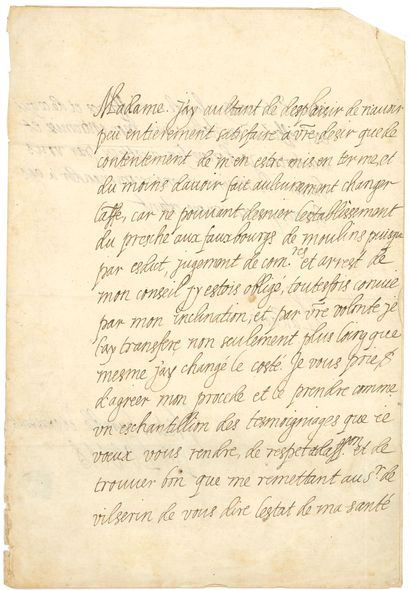 Madame. Jay aultant de desplaisir de n'auoir
peu entierement satisfaire a vre desir que de
contentement de m'en estre mis en terme et
du moins davoir fait aulcunement changer
laffe, car ne pouuant desnier lestablissement
du presche aux fauxbourgs de moulins puisque
par esdict, jugement de com.res et arrest de
mon conseil j'y estois obligé, toutesfois conuié
par mon inclination, et par vre volonté je
l'ay transferé non seulement plus loing que
mesme j'ay changé le costé. Je vous prie
d'agreer mon procedé et le prendre comme
vn eschantillon des tesmoignages que ie
veux vous rendre, de respet et daffon et de
trouuer bon que me remettant au sr de
vilserin de vous dire lestat de ma santé